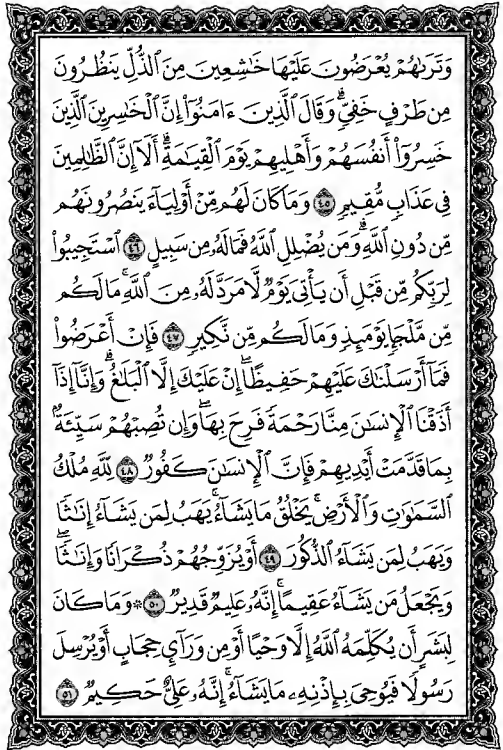 وَتَرَىٰهُمْ يُعْرَضُونَ عَلَيْهَا خَٰشِعِينَ مِنَ ٱلذُّلِّ يَنظُرُونَ
مِن طَرْفٍ خَفِيٍّ ۗ وَقَالَ ٱلَّذِينَ ءَامَنُوٓا۟ إِنَّ ٱلْخَٰسِرِينَ ٱلَّذِينَ
خَسِرُوٓا۟ أَنفُسَهُمْ وَأَهْلِيهِمْ يَوْمَ ٱلْقِيَٰمَةِ ۗ أَلَآ إِنَّ ٱلظَّٰلِمِينَ
فِى عَذَابٍ مُّقِيمٍ ٤٥ وَمَا كَانَ لَهُم مِّنْ أَوْلِيَآءَ يَنصُرُونَهُم
مِّن دُونِ ٱللَّهِ ۗ وَمَن يُضْلِلِ ٱللَّهُ فَمَا لَهُۥ مِن سَبِيلٍ ٤٦ ٱسْتَجِيبُوا۟
لِرَبِّكُم مِّن قَبْلِ أَن يَأْتِىَ يَوْمٌ لَّا مَرَدَّ لَهُۥ مِنَ ٱللَّهِ ۚ مَا لَكُم
مِّن مَّلْجَإٍ يَوْمَئِذٍ وَمَا لَكُم مِّن نَّكِيرٍ ٤٧ فَإِنْ أَعْرَضُوا۟
فَمَآ أَرْسَلْنَٰكَ عَلَيْهِمْ حَفِيظًا ۖ إِنْ عَلَيْكَ إِلَّا ٱلْبَلَٰغُ ۗ وَإِنَّآ إِذَآ
أَذَقْنَا ٱلْإِنسَٰنَ مِنَّا رَحْمَةً فَرِحَ بِهَا ۖ وَإِن تُصِبْهُمْ سَيِّئَةٌۢ
بِمَا قَدَّمَتْ أَيْدِيهِمْ فَإِنَّ ٱلْإِنسَٰنَ كَفُورٌ ٤٨ لِّلَّهِ مُلْكُ
ٱلسَّمَٰوَٰتِ وَٱلْأَرْضِ ۚ يَخْلُقُ مَا يَشَآءُ ۚ يَهَبُ لِمَن يَشَآءُ إِنَٰثًا
وَيَهَبُ لِمَن يَشَآءُ ٱلذُّكُورَ ٤٩ أَوْ يُزَوِّجُهُمْ ذُكْرَانًا وَإِنَٰثًا ۖ
وَيَجْعَلُ مَن يَشَآءُ عَقِيمًا ۚ إِنَّهُۥ عَلِيمٌ قَدِيرٌ ٥٠ * وَمَا كَانَ
لِبَشَرٍ أَن يُكَلِّمَهُ ٱللَّهُ إِلَّا وَحْيًا أَوْ مِن وَرَآئِ حِجَابٍ أَوْ يُرْسِلَ
رَسُولًا فَيُوحِىَ بِإِذْنِهِۦ مَا يَشَآءُ ۚ إِنَّهُۥ عَلِىٌّ حَكِيمٌ ٥١